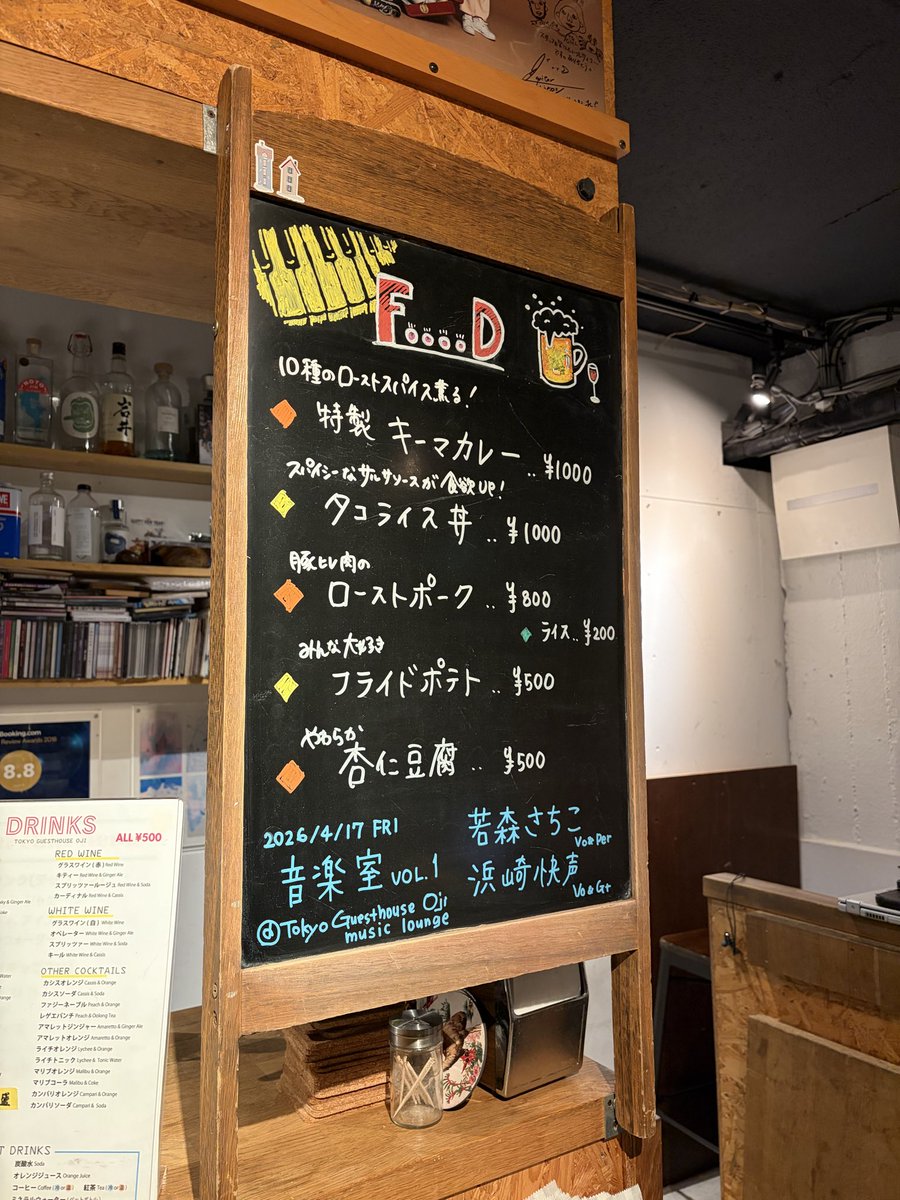 F....D
10種のローストスパイス薫る!
特製 キーマカレー..¥1000
スパイシーなサルサソースが食欲UP!
タコライス丼..¥1000
豚ヒレ肉の
ローストポーク..¥800
ライス..¥200
みんな大好き
フライドポテト..¥500
やわらか
杏仁豆腐..¥500
2026/4/17 FRI
音楽室 VOL.1
@Tokyo Guesthouse Oji
music lounge
若森さちこ
Vo&Per
浜崎快声
Vo&Gt
岩井
Booking.com
Review Awards 2018
8.8
DRINKS
TOKYO GUESTHOUSE OJI
ALL ¥500
RED WINE
グラスワイン(赤) Red Wine
キティー Red Wine & Ginger Ale
スプリッツァールージュ Red Wine & Soda
カーディナル Red Wine & Cassis
WHITE WINE
グラスワイン(白) White Wine
オペレーター White Wine & Ginger Ale
スプリッツァー White Wine & Soda
キール White Wine & Cassis
OTHER COCKTAILS
カシスオレンジ Cassis & Orange
カシスソーダ Cassis & Soda
ファジーネーブル Peach & Orange
レゲエパンチ Peach & Oolong Tea
アマレットジンジャー Amaretto & Ginger Ale
アマレットオレンジ Amaretto & Orange
ライチオレンジ Lychee & Orange
ライチトニック Lychee & Tonic Water
マリブオレンジ Malibu & Orange
マリブコーラ Malibu & Coke
カンパリオレンジ Campari & Orange
カンパリソーダ Campari & Soda
T DRINKS
炭酸水 Soda
オレンジジュース Orange Juice
コーヒー Coffee (冷or温) 紅茶 Tea (冷or温)
ミネラルウォーター (ペットボトル)